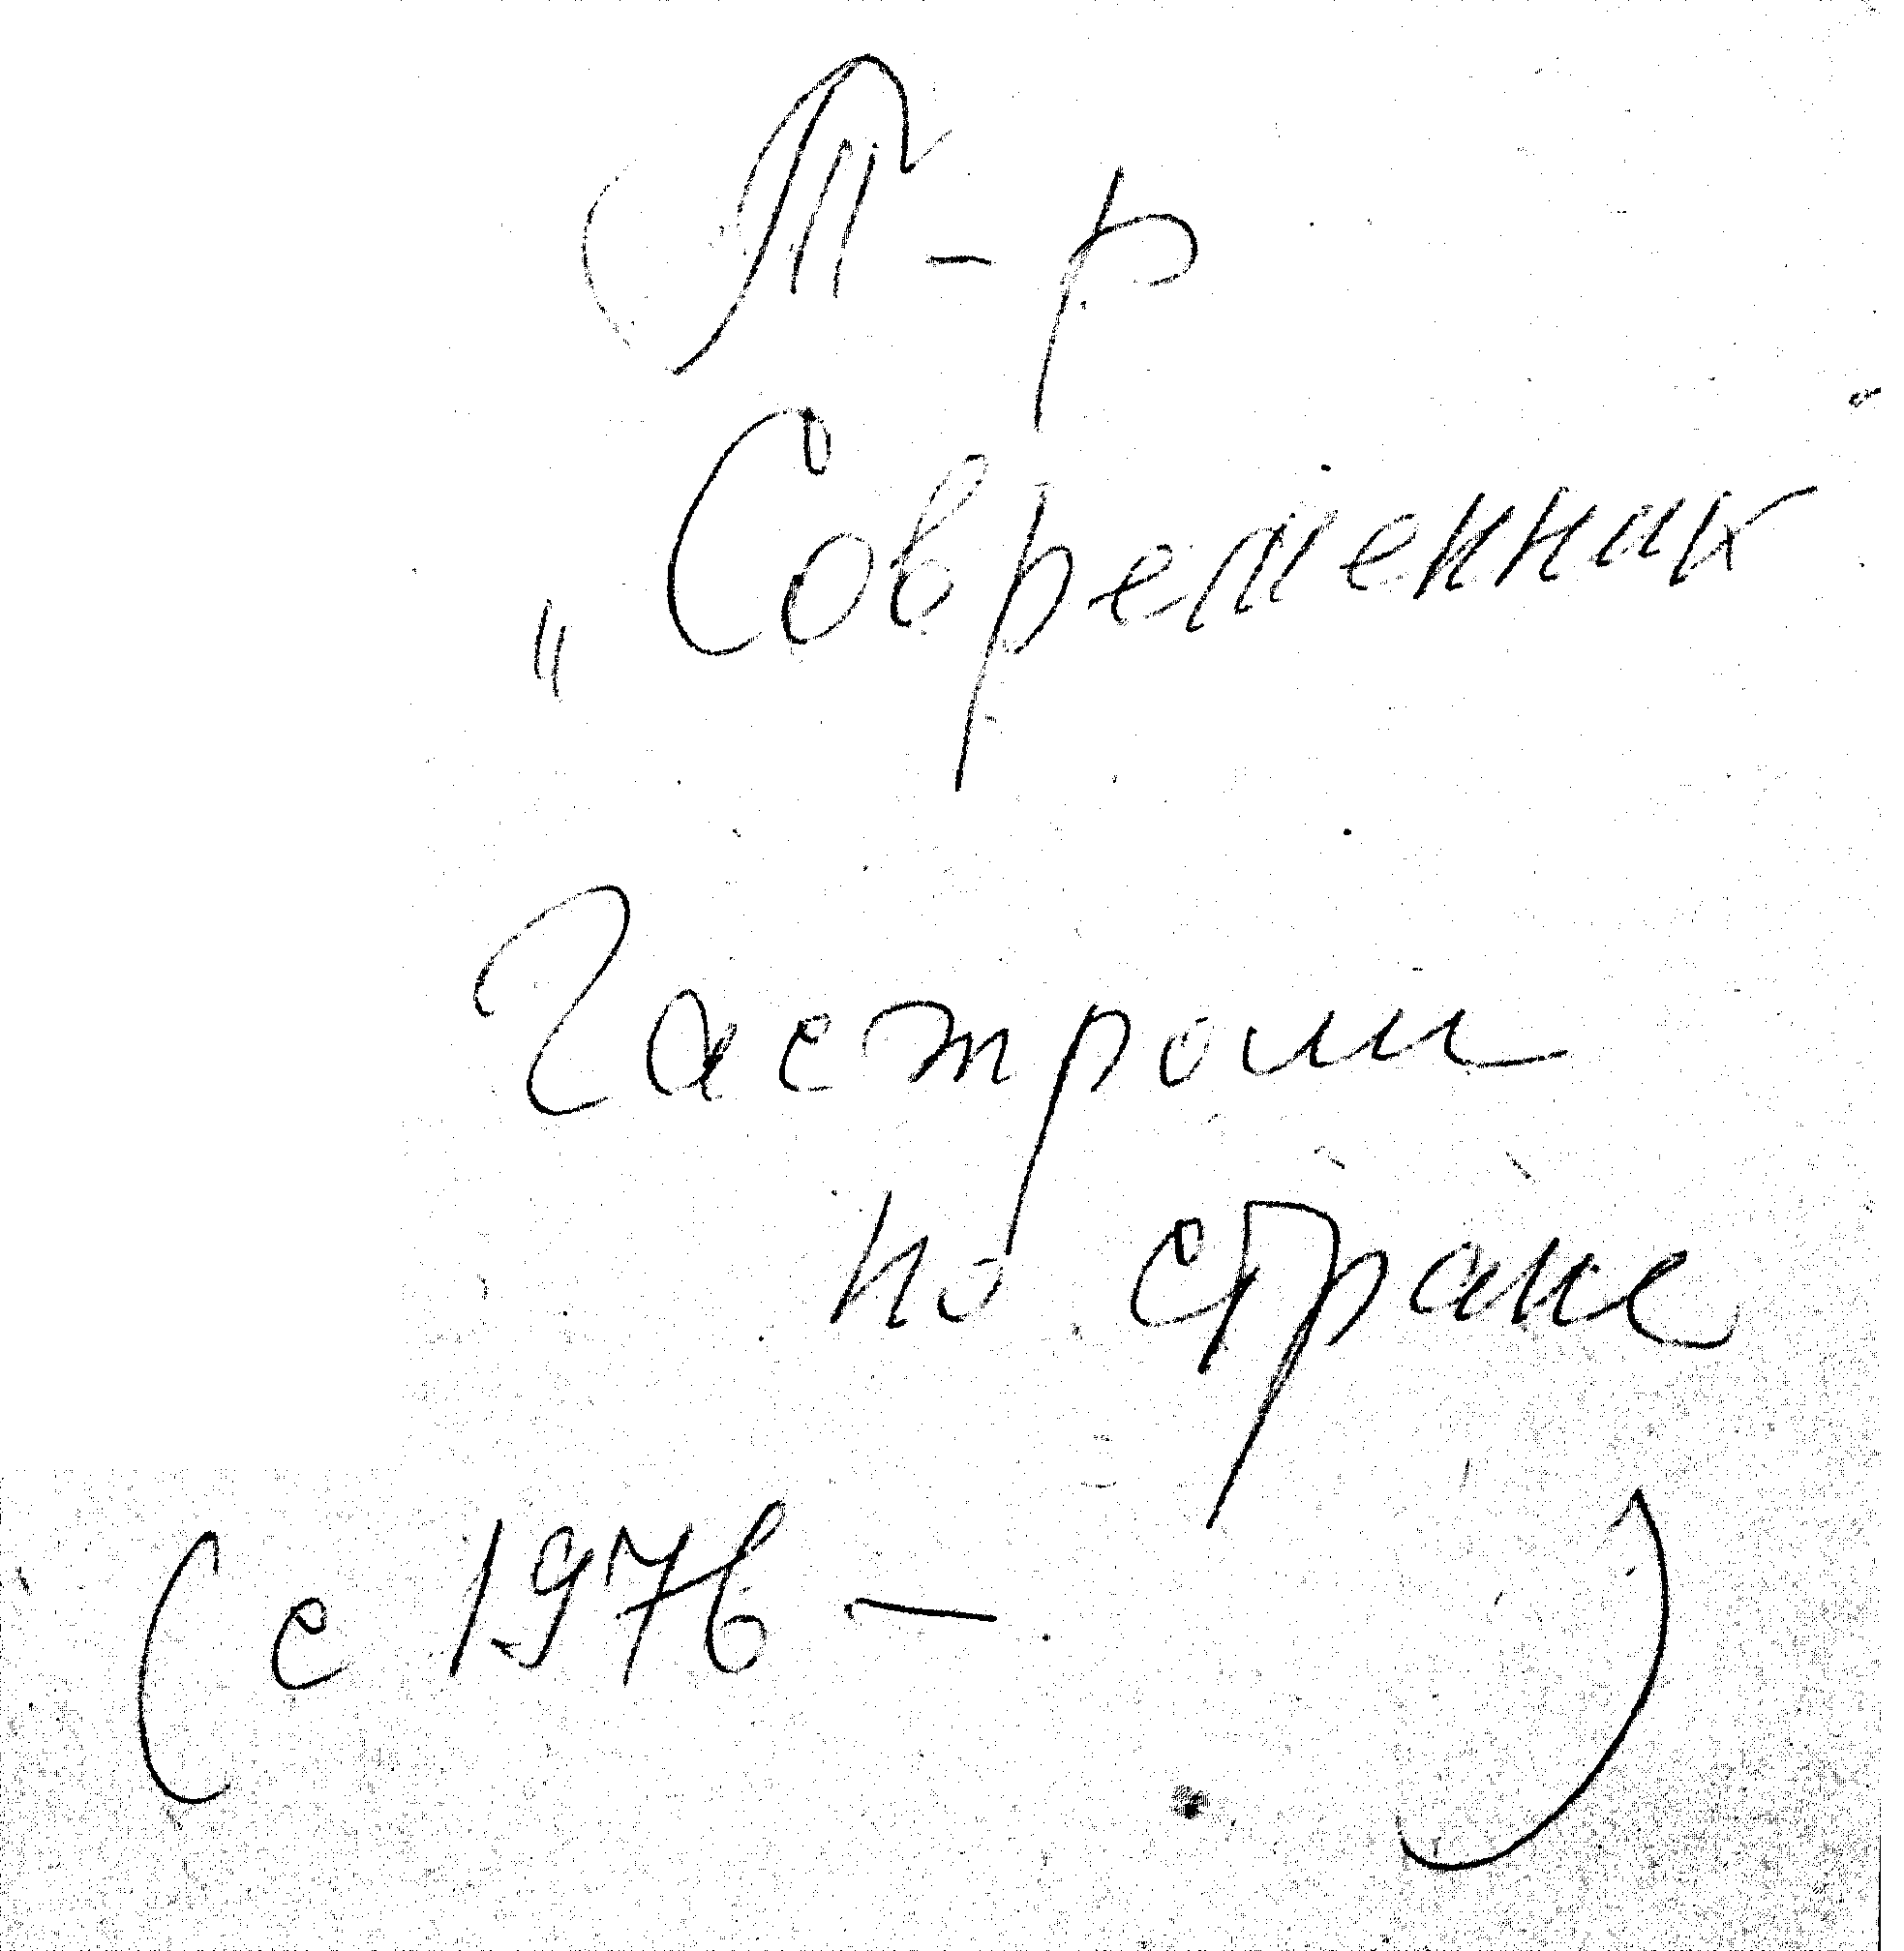 Т-р
„Современник"
Гастроли
по стране
(с 1976 — )